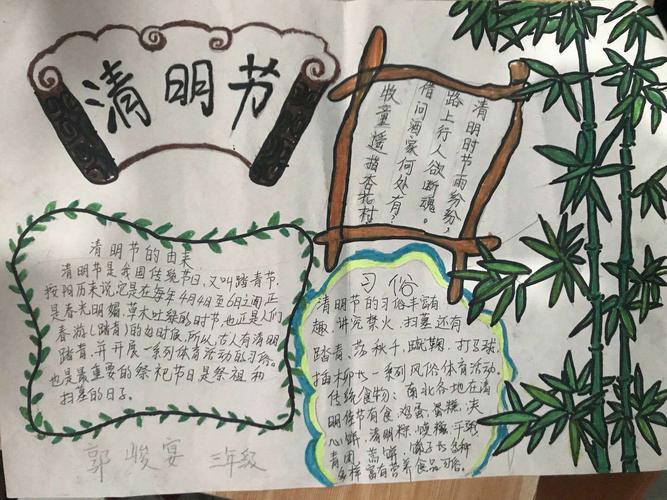 清明节
清明时节雨纷纷,
路上行人欲断魂。
借问酒家何处有?
牧童遥指杏花村
清明节的由来
清明节是我国传统节日,又叫踏青节。
按阳历来说,它是在每年4月4日至6日之间,正
是春光明媚,草木吐绿的时节,也正是人们
春游(踏青)的好时候,所以,古人有清明
踏青,并开展一系列体育活动的习俗。
也是最重要的祭祀节日是祭祖和
扫墓的日子。
习俗
清明节的习俗丰富有
趣,讲究禁火、扫墓还有
踏青、荡秋千、蹴鞠、打马球、
插柳长一系列风俗体育活动。
传统食物:南北各地在清
明佳节有食鸡蛋、蛋糕、夹
心饼、清明粽、馍糍、干粥
青团、
多种
多样富有营养食品习俗。
郭峻宴 三年级